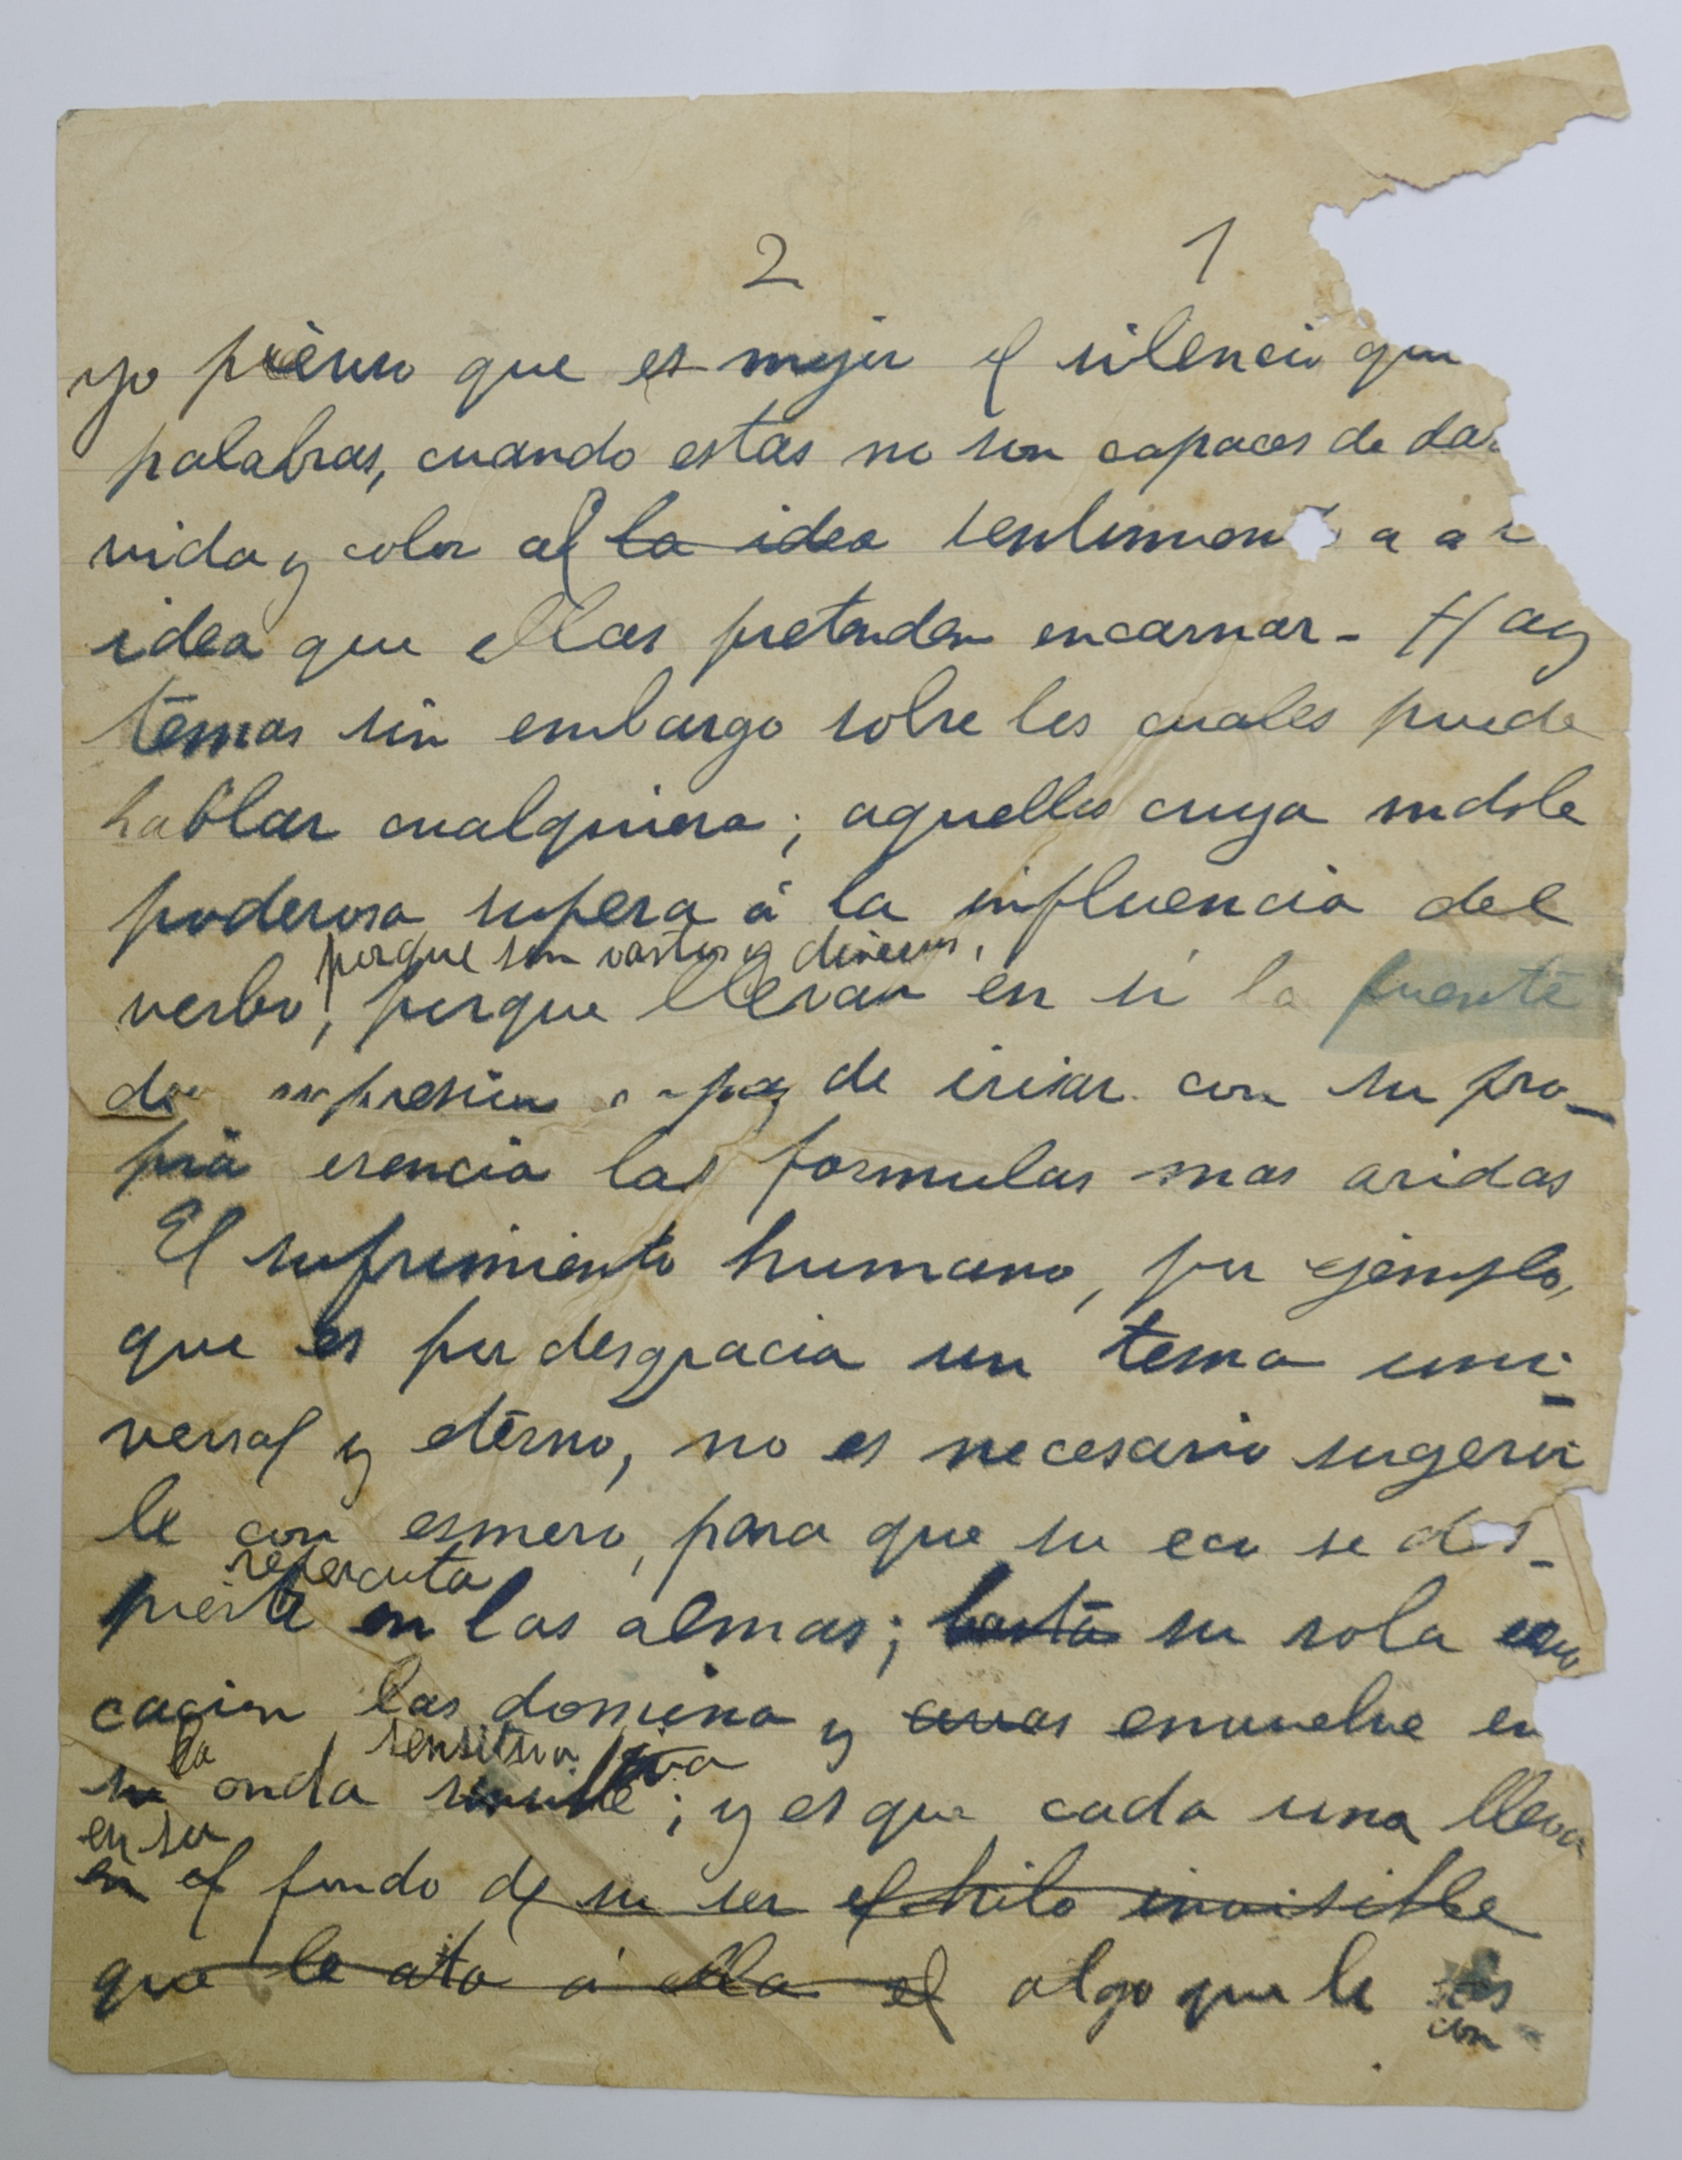 2 1
yo pienso que es mejor el silencio que
palabras, cuando estas no son capaces de dar
vida y color al la idea sentimen a a
idea que ellas pretenden encarnar - Hay
temas sin embargo sobre los cuales puede
hablar cualquiera; aquellos cuya indole
poderosa supera á la influencia del
porque son vastos y diversos,
verbo, porque llevan en si la fuente
de expresion capaz de irisar con su pro-
pia esencia las formulas mas aridas
El sufrimiento humano, por ejemplo,
que es por desgracia un tema uni-
versal y eterno, no es necesario sugerir
le con esmero, para que su eco se des-
repercuta
pierte en las almas; basta su sola evo
cacion las domina y envuelve en
la sensitiva
su onda sensible; y es que cada una lleva
en su
en el fondo de su ser el hilo invisible
que le ata á ella el algo que le
con